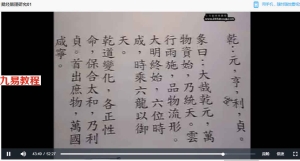 乾:元,亨,利,貞。
彖曰:大哉乾元,萬
物資始,乃統天。雲
行雨施,品物流形。
大明終始,六位時
成,時乘六龍以御
天。
乾道變化,各正性
命,保合太和,乃利
貞。首出庶物,萬國
咸寧。
九易教程